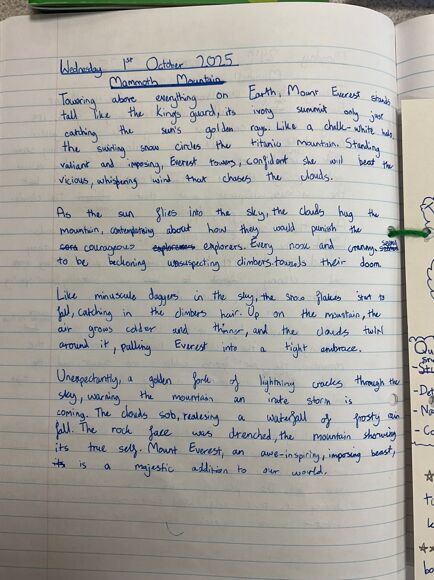 Wednesday 1st October 2025
Mammoth Mountain
Towering above everything on Earth, Mount Everest stands
tall like the kings guard, its ivory summit only just
catching the sun's golden rays. Like a chalk-white halo,
the swirling snow circles the titanic mountain. Standing
valiant and imposing, Everest towers, confident she will beat the
vicious, whispering wind that chases the clouds.
As the sun flies into the sky, the clouds hug the
mountain, contemplating about how they would punish the
courageous explorers. Every nook and cranny seemed
to be beckoning unsuspecting climbers towards their doom.
Like minuscule daggers in the sky, the snow flakes start to
fall, catching in the climbers hair. Up on the mountain, the
air grows colder and thinner, and the clouds twirl
around it, pulling Everest into a tight embrace.
Unexpectantly, a golden fork of lightning cracks through the
sky, warning the mountain an irate storm is
coming. The clouds sob, realesing a waterfall of frosty rain
fall. The rock face was drenched, the mountain showing
its true self. Mount Everest, an awe-inspiring, imposing beast,
is a majestic addition to our world.
Qu